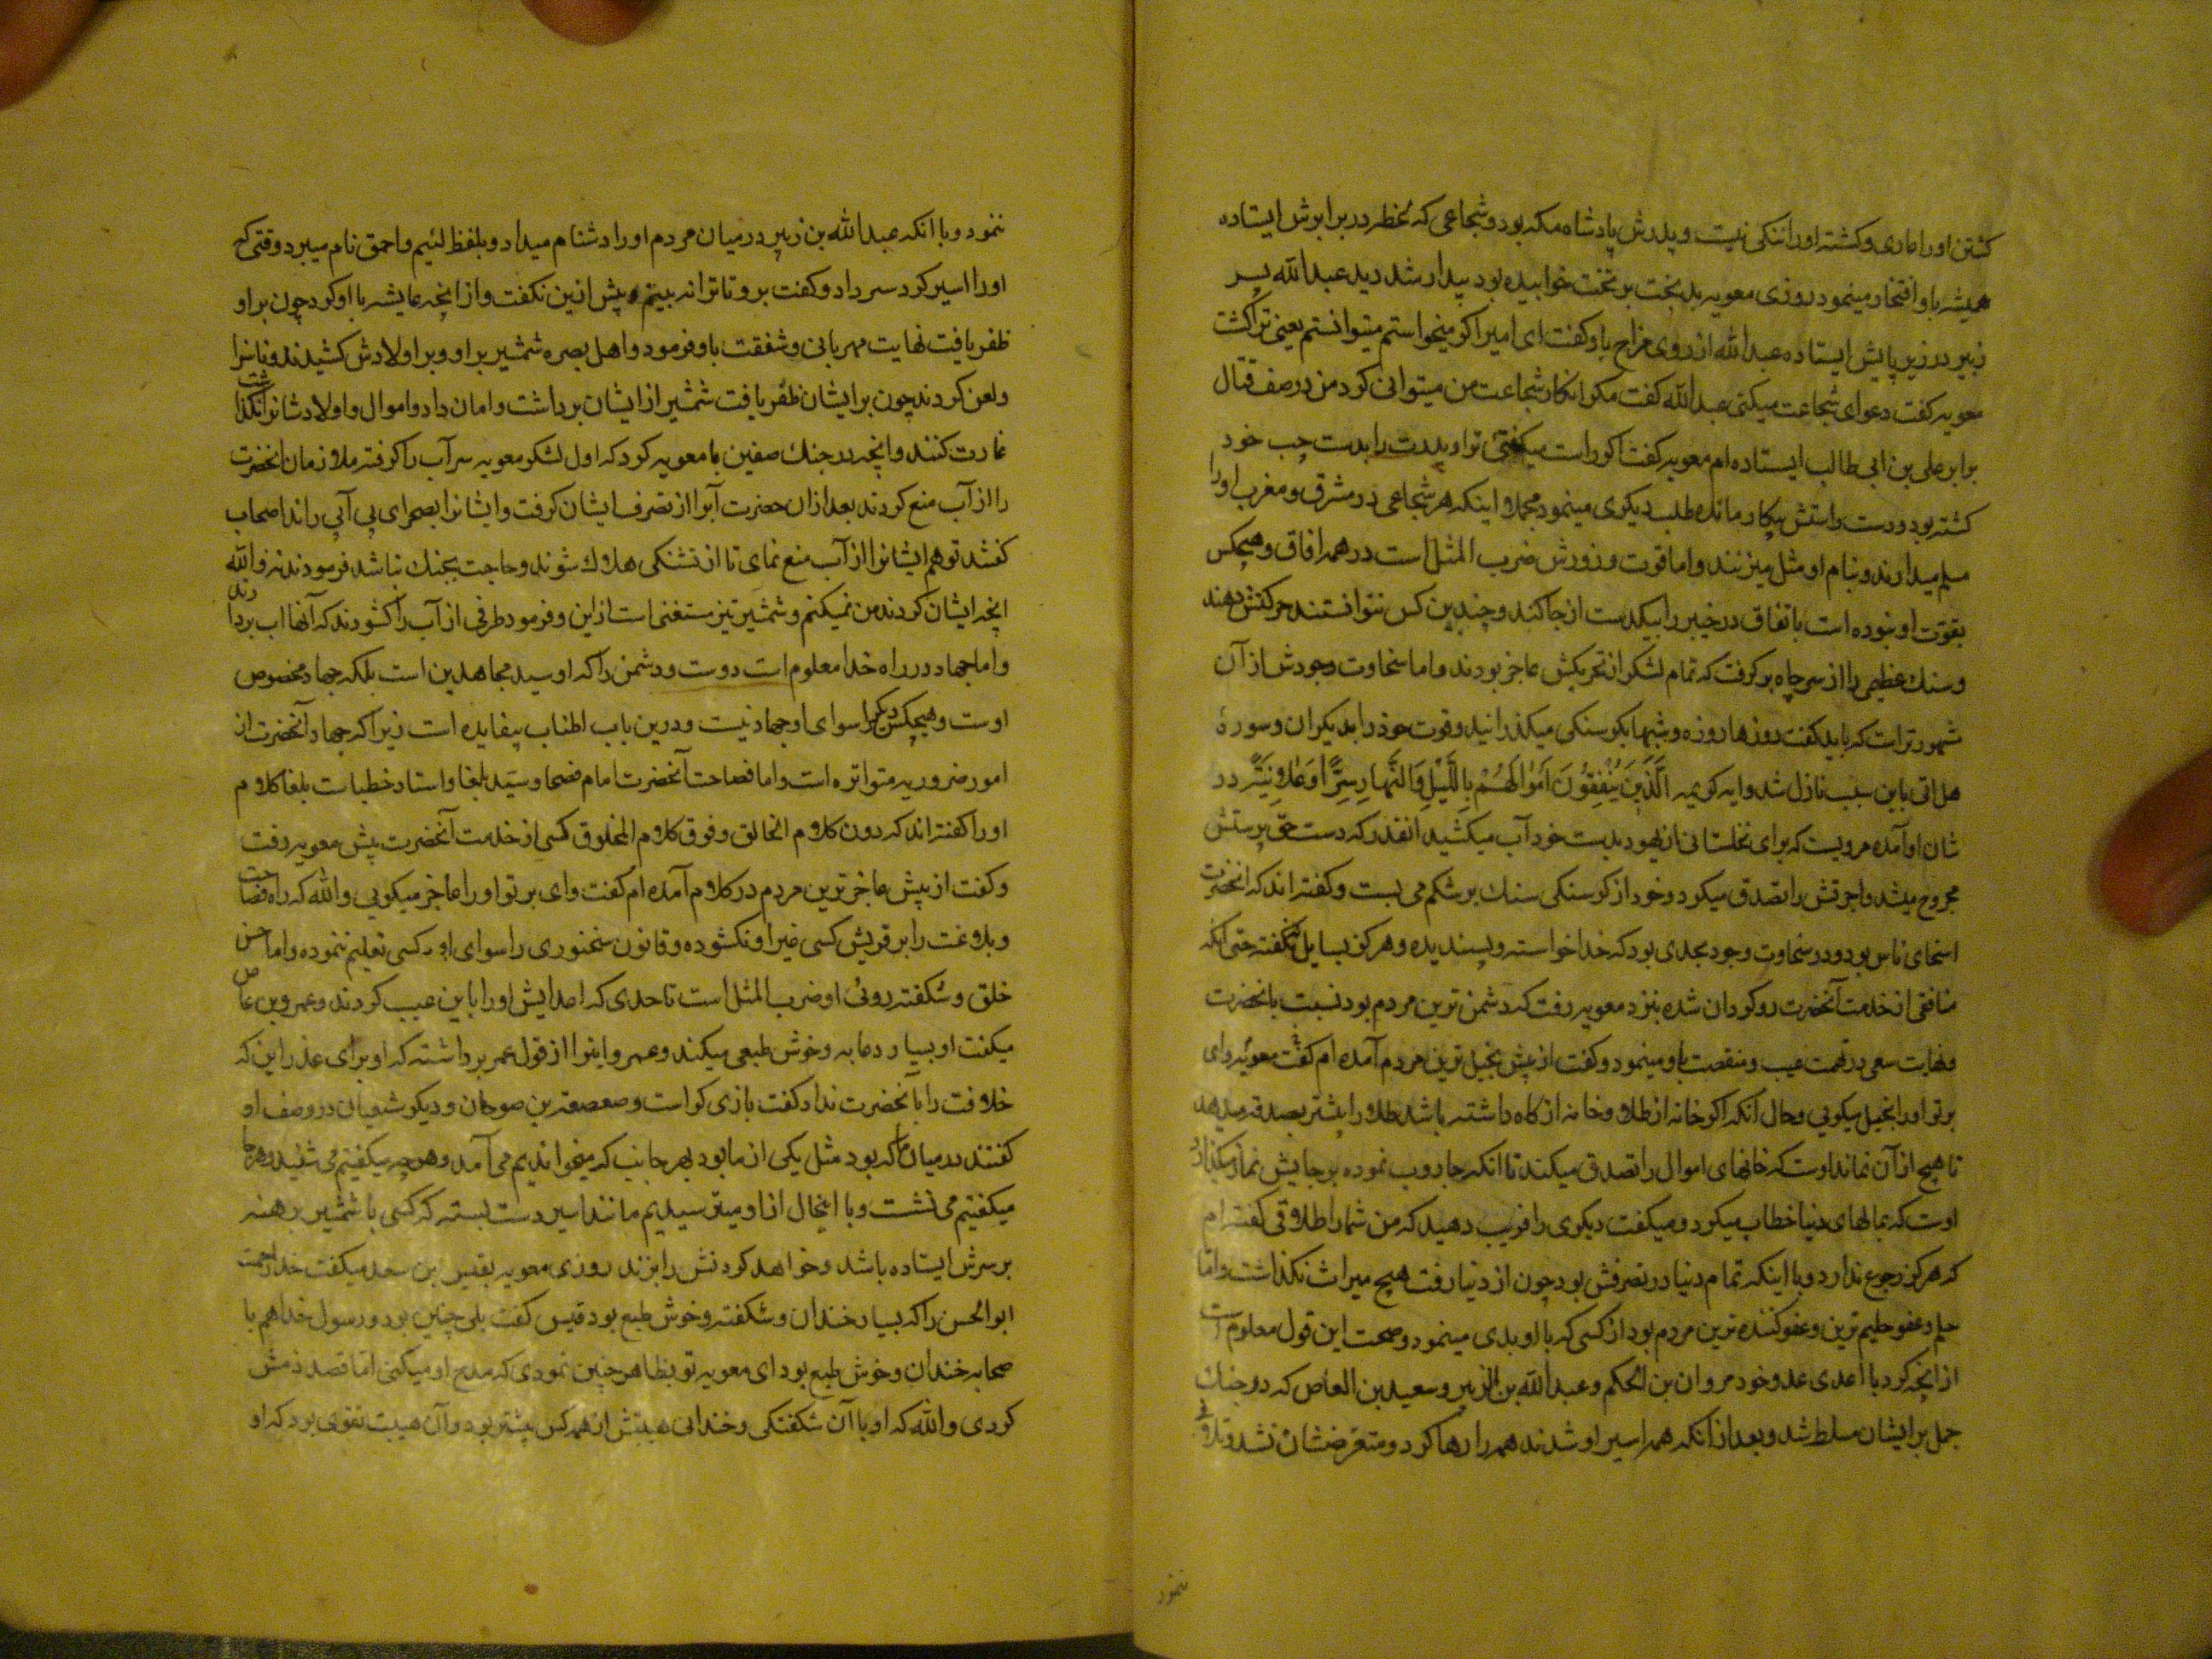 کشتن او را عاری و کشته او را ننکی نیست و پدرش پادشاه مکه بود و شجاعی که لحظه در برابرش ایستاده
همیشه باو افتخار مینمود روزی معویه بدبخت بر تخت خوابیده بود بیدار شد دید عبدالله پسر
زبیر در زیر پایش ایستاده عبدالله از روی مزاح باو کفت ای امیر اکر میخواستم میتوانستم یعنی ترا کشت
معویه کفت دعوای شجاعت میکنی عبدالله کفت مکر انکار شجاعت من میتوانی کرد من در صف قتال
برابر علی بن ابی طالب ایستاده ام معویه کفت اکر راست میکفتی ترا و پدرت را بدست چپ خود
کشته بود و دست راستش بیکار مانده طلب دیکری مینمود مجملا اینکه هر شجاعی در مشرق و مغرب او را
مسلم میدارند و بنام او مثل میزنند و اما قوت و زورش ضرب المثل است در همه افاق و هیچکس
بقوت او نبوده است باتفاق در خیبر را بیکدست از جا کند و چندین کس نتوانستند حرکتش دهند
و سنک عظیمی را از سر چاه برکرفت که تمام لشکر از تحریکش عاجز بودند و اما سخاوت وجودش از آن
مشهورتر است که باید کفت روزها روزه و شبها بکرسنکی میکذرانید و قوت خود را بدیکران و سورهٔ
هل اتی باین سبب نازل شد و ایه کریمه الَّذینَ یُنْفِقُونَ اَمْوالَهُمْ بِاللَّیْلِ وَالنَّهارِ سِرًّا وَعَلانِیَةً در
شان او آمده مرویست که برای نخلستانی از یهود بدست خود آب میکشید انقدر که دست حق پرستش
مجروح میشد و اجرتش را تصدق میکرد و خود از کرسنکی سنک بر شکم می بست و کفته اند که انحضرت
اسخای ناس بود و در سخاوت وجود بحدی بود که خدا خواسته و پسندیده و هرکز بسایل نه نکفته حتی انکه
منافقی از خدمت آنحضرت روکردان شده بنزد معویه رفت که دشمن ترین مردم بود نسبت بانحضرت
و نهایت سعی در تهمت عیب و منقصت باو مینمود و کفت از پیش بخیل ترین مردم آمده ام کفت معویه وای
بر تو او را بخیل میکویی و حال آنکه اکر خانه از طلا و خانه از کاه داشته باشد طلا را بیشتر تصدق میدهد
تا هیچ از آن نماند اوست که خانهای اموال را تصدق میکند تا انکه جاروب نموده بر جایش نماز میکذارد
اوست که بمالهای دنیا خطاب میکرد و میکفت دیکری را فریب دهید که من شما را طلاقی کفته ام
که هرکز رجوع ندارد و با اینکه تمام دنیا در تصرفش بود چون از دنیا رفت هیچ میراث نکذاشت و اما
حلم و عفو حلیم ترین و عفو کننده ترین مردم بود از کسی که با او بدی مینمود و صحت این قول معلوم است
از انچه کرد با اعدی عدو خود مروان بن الحکم و عبدالله بن الزبیر و سعید بن العاص که در جنک
جمل بر ایشان مسلط شد و بعد از انکه همه اسیر او شدند همه را رها کرد و متعرضشان نشد و تلافی
ننمود
ننمود و با انکه عبدالله بن زبیر در میان مردم او را دشنام میداد و بلفظ لئیم و احمق نام میبرد وقتی که
او را اسیر کرد سر داد و کفت برو تا ترا نه بینم پیش ازین نکفت و از انچه عایشه با او کرد چون بر او
ظفر یافت نهایت مهربانی و شفقت باو فرمود و اهل بصره شمشیر بر او و بر اولادش کشیدند و ناسزا
و لعن کردند چون بر ایشان ظفر یافت شمشیر از ایشان برداشت و امان داد و اموال و اولادشانرا نکذاشت
غارت کنند و انچه در جنک صفین با معویه کرد که اول لشکر معویه سر آب را کرفته ملازمان انحضرت
را از آب منع کردند بعد ازان حضرت آبرا از تصرف ایشان کرفت و ایشانرا بصحرای بی آبی راند اصحاب
کفتند تو هم ایشانرا از آب منع نمای تا از تشنکی هلاک شوند و حاجت بجنک نباشد فرمودند نه والله
انچه ایشان کردند من نمیکنم و شمشیر تیز مستغنی است ازین و فرمود طرفی از آب را کشودند که آنها اب بردارند
و اما جهاد در راه خدا معلوم است دوست و دشمن را که او سید مجاهدین است بلکه جهاد مخصوص
اوست و هیچکس دیکر را سوای او جهاد نیست و درین باب اطناب بیفایده است زیرا که جهاد آنحضرت از
امور ضروریه متواتره است و اما فصاحت آنحضرت امام فصحا و سید بلغا و استاد خطباست بلغا کلام
او را کفته اند که دون کلام الخالق و فوق کلام المخلوق کسی از خدمت آنحضرت پیش معویه رفت
و کفت از پیش عاجزترین مردم در کلام آمده ام کفت وای بر تو او را عاجز میکویی والله که راه فصاحت
و بلاغت را بر قریش کسی غیر او نکشوده و قانون سخنوری را سوای او کسی تعلیم ننموده و اما حسن
خلق و شکفته روئی او ضرب المثل است تا حدی که اعدایش او را باین عیب کردند و عمرو بن عاص
میکفت او بسیار دعابه و خوش طبعی میکند و عمرو اینرا از قول عمر برداشته که او برای عذر این که
خلافت را بآنحضرت نداد کفت بازی کر است و صعصعة بن صوحان و دیکر شیعیان در وصف او
کفتند در میان ما که بود مثل یکی از ما بود بهر جانب که میخواندیم می آمد و هرچه میکفتیم می شنید و هرجا
میکفتیم می نشست و با اینحال از او میترسیدیم مانند اسیر دست بسته که کسی با شمشیر برهنه
بر سرش ایستاده باشد و خواهد کردنش را بزند روزی معویه بقیس بن سعد میکفت خدا رحمت کند
ابوالحسن را که بسیار خندان و شکفته و خوش طبع بود قیس کفت بلی چنین بود و رسول خدا هم با
صحابه خندان و خوش طبع بود ای معویه تو بظاهر چنین نمودی که مدح او میکنی اما قصد ذمش
کردی والله که او با آن شکفتکی و خندانی هیبتش از همه کس بیشتر بود و آن هیبت تقوی بود که او